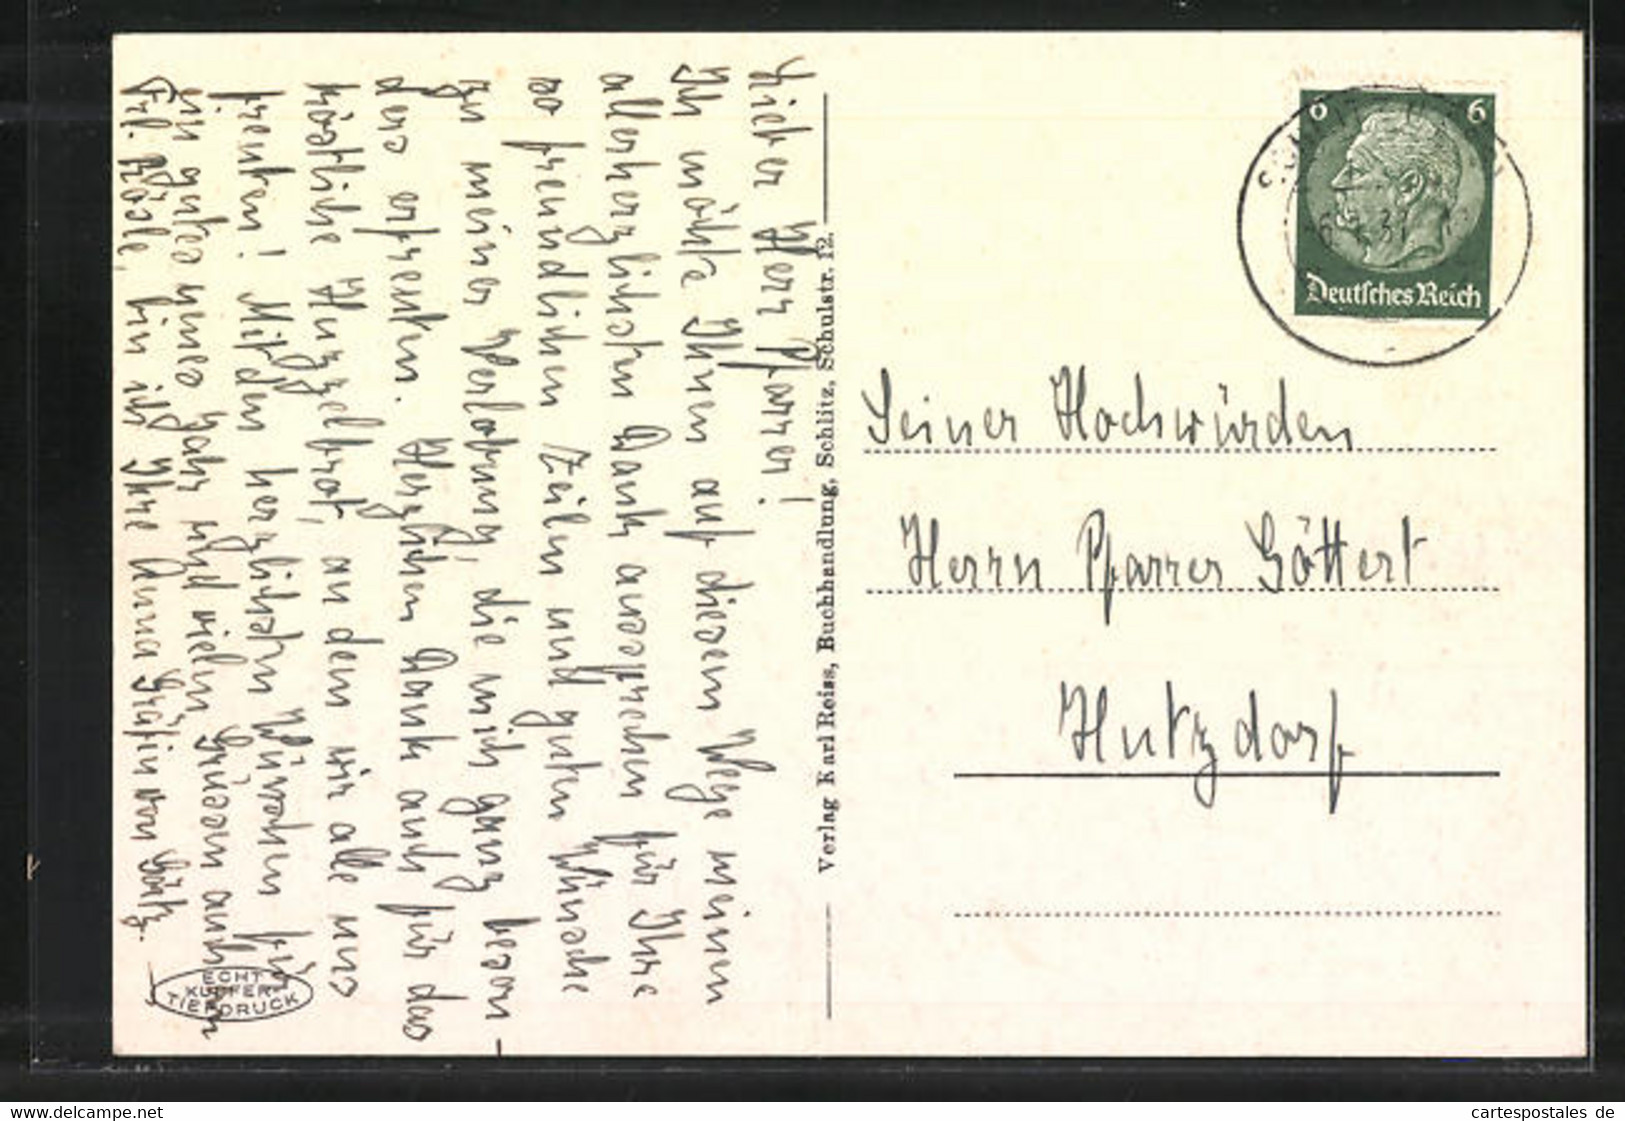 Lieber Herr Pfarrer!
Ich möchte Ihnen auf diesem Wege meinen
allerherzlichsten Dank aussprechen für Ihre
so freundlichen Zeilen und guten Wünsche
zu meiner Verlobung, die mich ganz beson-
ders erfreuten. Herzlichen Dank auch für das
köstliche Hutzelbrot, an dem wir alle uns
freuten! Mit den herzlichsten Wünschen für
ein gutes neues Jahr und vielen Grüssen auch an
Frl. Rösle, bin ich Ihre Anna Gräfin von Görtz.
ECHT
KUPFER-
TIEFDRUCK
Verlag Karl Reiss, Buchhandlung, Schlitz, Schulstr. 12.
6 6
Deutsches Reich
37
Seiner Hochwürden
Herrn Pfarrer Göttert
Hutzdorf
www.delcampe.net
cartespostales de